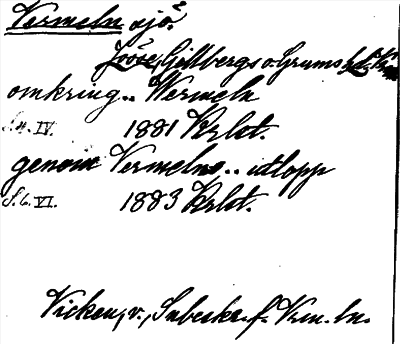 Vermeln sjö.
Jösse, Gillbergs o. Grums
omkring .. Wermeln
S.4.IV. 1881 Krlst.
genom Vermelns .. utlopp
S.6.VI. 1883 Krlst.
Vicken, v., f. Vrm. ln.